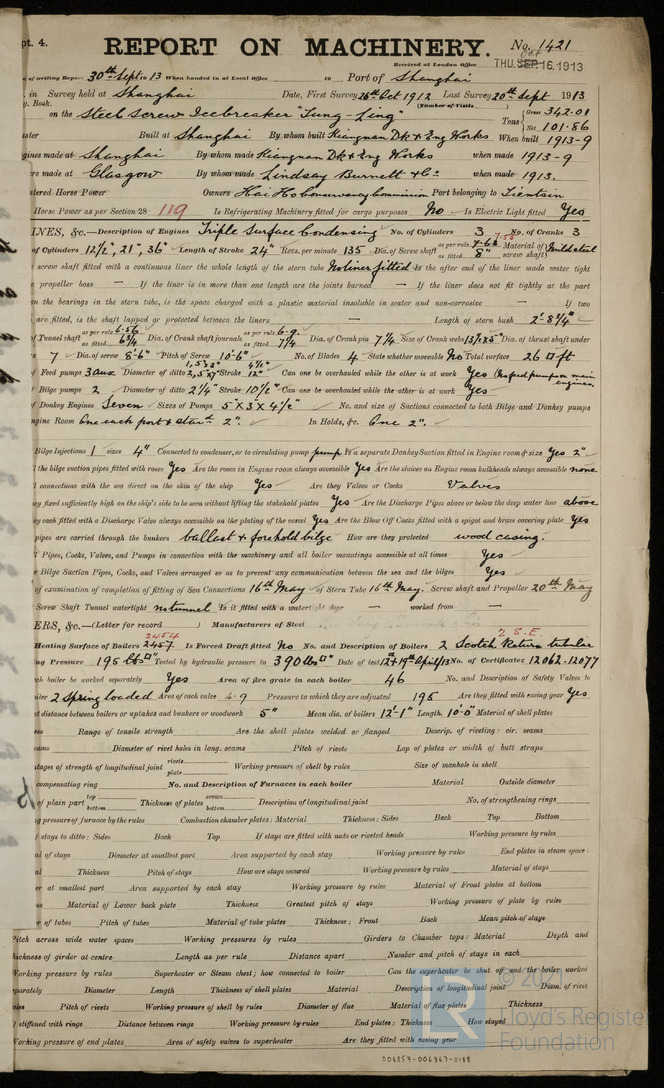 pt. 4.
REPORT ON MACHINERY. No. 1421
Received at London Office THU. OCT 16. 1913
of writing Report 30th Sept 1913 When handed in at Local Office 10 Port of Shanghai
in Survey held at Shanghai Date, First Survey 26th Oct 1912 Last Survey 20th Sept 1913
Book. (Number of Visits
on the Steel Screw Icebreaker "Tung-Ling" Tons { Gross 342.01 No. 101.56
Built at Shanghai By whom built Kiangnan Dk & Eng Works When built 1913-9
gines made at Shanghai By whom made Kiangnan Dk & Eng Works when made 1913-9
ers made at Glasgow By whom made Lindsay Burnett & Co. when made 1913.
tered Horse Power Owners Hai Ho Conservancy Commission Port belonging to Tientsin
Horse Power as per Section 28 119 Is Refrigerating Machinery fitted for cargo purposes No Is Electric Light fitted Yes
INES, &c.—Description of Engines Triple Surface Condensing No. of Cylinders 3 No. of Cranks 3
of Cylinders 12½", 21", 36" Length of Stroke 24" Revs. per minute 135 Dia. of Screw shaft as per rule 7.63 7.55 as fitted 8" Material of screw shaft Mild steel
screw shaft fitted with a continuous liner the whole length of the stern tube No liner fitted Is the after end of the liner made water tight
propeller boss — If the liner is in more than one length are the joints burned — If the liner does not fit tightly at the part
en the bearings in the stern tube, is the space charged with a plastic material insoluble in water and non-corrosive — If two
are fitted, is the shaft lapped or protected between the liners — Length of stern bush 2'-8¾"
f Tunnel shaft as per rule 6.56 as fitted 6¾ Dia. of Crank shaft journals as per rule 6.9 as fitted 7¼ Dia. of Crank pin 7¼ Size of Crank webs 13½x5" Dia. of thrust shaft under
7 Dia. of screw 8'-6" Pitch of Screw 10'-6" No. of Blades 4 State whether moveable No Total surface 26 □ ft
of Feed pumps 3 aux Diameter of ditto Stroke 12" Can one be overhauled while the other is at work Yes (No feed pumps on main engines)
f Bilge pumps 2 Diameter of ditto 2¼" Stroke 10½" Can one be overhauled while the other is at work Yes
of Donkey Engines Seven Sizes of Pumps 5" x 3" x 4½" No. and size of Suctions connected to both Bilge and Donkey pumps
ngine Room One each port & starbd 2". In Holds, &c. One 2".
Bilge Injections 1 sizes 4" Connected to condenser, or to circulating pump pump Is a separate Donkey Suction fitted in Engine room & size Yes 2"
l the bilge suction pipes fitted with roses Yes Are the roses in Engine room always accessible Yes Are the sluices on Engine room bulkheads always accessible none
l connections with the sea direct on the skin of the ship Yes Are they Valves or Cocks Valves
ey fixed sufficiently high on the ship's side to be seen without lifting the stokehold plates Yes Are the Discharge Pipes above or below the deep water line above
ey each fitted with a Discharge Valve always accessible on the plating of the vessel Yes Are the Blow Off Cocks fitted with a spigot and brass covering plate Yes
pipes are carried through the bunkers ballast & forehold bilge How are they protected wood casing.
l Pipes, Cocks, Valves, and Pumps in connection with the machinery and all boiler mountings accessible at all times Yes
e Bilge Suction Pipes, Cocks, and Valves arranged so as to prevent any communication between the sea and the bilges Yes
of examination of completion of fitting of Sea Connections 16th May of Stern Tube 16th May. Screw shaft and Propeller 20th May
Screw Shaft Tunnel watertight no tunnel Is it fitted with a watertight door — worked from —
ERS, &c.—(Letter for record ) Manufacturers of Steel
Heating Surface of Boilers 2457 2454 Is Forced Draft fitted No No. and Description of Boilers 2 Scotch Return tubular 2 S.E.
ing Pressure 195 lbs □" Tested by hydraulic pressure to 390 lbs □" Date of test 12th & 19th April/13 No. of Certificates 12062. 12077
ch boiler be worked separately Yes Area of fire grate in each boiler 46 No. and Description of Safety Valves to
iler 2 Spring loaded Area of each valve 4.9 Pressure to which they are adjusted 195 Are they fitted with easing gear Yes
st distance between boilers or uptakes and bunkers or woodwork 5" Mean dia. of boilers 12'-1" Length 10'-0" Material of shell plates
ess Range of tensile strength Are the shell plates welded or flanged Descrip. of riveting: cir. seams
eams Diameter of rivet holes in long. seams Pitch of rivets Lap of plates or width of butt straps
ntages of strength of longitudinal joint rivets plate Working pressure of shell by rules Size of manhole in shell
compensating ring No. and Description of Furnaces in each boiler Material Outside diameter
of plain part top bottom Thickness of plates crown bottom Description of longitudinal joint No. of strengthening rings
ng pressure of furnace by the rules Combustion chamber plates: Material Thickness: Sides Back Top Bottom
of stays to ditto: Sides Back Top If stays are fitted with nuts or riveted heads Working pressure by rules
al of stays Diameter at smallest part Area supported by each stay Working pressure by rules End plates in steam space:
al Thickness Pitch of stays How are stays secured Working pressure by rules Material of stays
er at smallest part Area supported by each stay Working pressure by rules Material of Front plates at bottom
ess Material of Lower back plate Thickness Greatest pitch of stays Working pressure of plate by rules
er of tubes Pitch of tubes Material of tube plates Thickness: Front Back Mean pitch of stays
Pitch across wide water spaces Working pressures by rules Girders to Chamber tops: Material Depth and
hickness of girder at centre Length as per rule Distance apart Number and pitch of stays in each
Working pressure by rules Superheater or Steam chest; how connected to boiler Can the superheater be shut off and the boiler worked
eparately Diameter Length Thickness of shell plates Material Description of longitudinal joint Diam. of rivet
oles Pitch of rivets Working pressure of shell by rules Diameter of flue Material of flue plates Thickness
f stiffened with rings Distance between rings Working pressure by rules End plates: Thickness How stayed
Working pressure of end plates Area of safety valves to superheater Are they fitted with easing gear
© 2021
Lloyd's Register
Foundation
006857-006867-0188